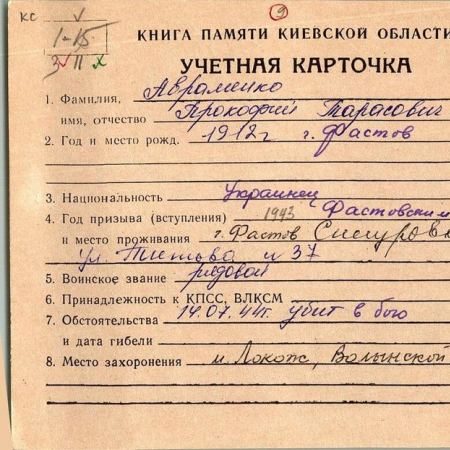 КС
1-15
9
КНИГА ПАМЯТИ КИЕВСКОЙ ОБЛАСТИ
УЧЕТНАЯ КАРТОЧКА
1. Фамилия, Авраменко
имя, отчество Прокофий Тарасович
2. Год и место рожд. 1912 г г. Фастов
3. Национальность Украинец
4. Год призыва (вступления) 1943 Фастовским
и место проживания г. Фастов
ул. Титова 37
5. Воинское звание рядовой
6. Принадлежность к КПСС, ВЛКСМ
7. Обстоятельства 14.07.44г. убит в бою
и дата гибели
8. Место захоронения м. Локож, Волынской